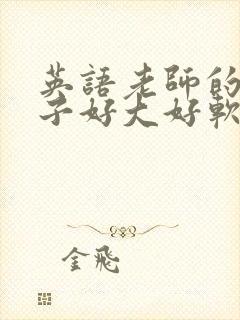 英語老師的
子好大好軟
金飛